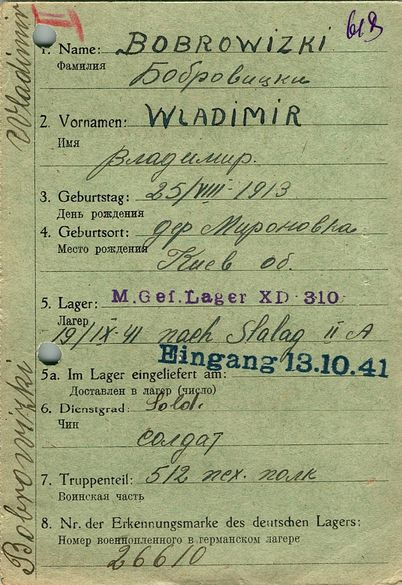 II
613
1. Name: BOBROWIZKI
Фамилия
Бобровицки
2. Vornamen: WLADIMIR
Имя
Владимир.
3. Geburtstag: 25/VIII 1913
День рождения
4. Geburtsort: дер Мироновка
Место рождения
Киев об.
5. Lager: M.Gef.Lager XD 310
Лагер
19/IX 41 nach Stalag II A
Eingang 13.10.41
5a. Im Lager eingeliefert am:
Доставлен в лагер (число)
6. Dienstgrad: Sold.
Чин
солдат
7. Truppenteil: 512 пех. полк
Воинская часть
8. Nr. der Erkennungsmarke des deutschen Lagers:
Номер военнопленного в германском лагере
26610
Bobrowizki Wladimir